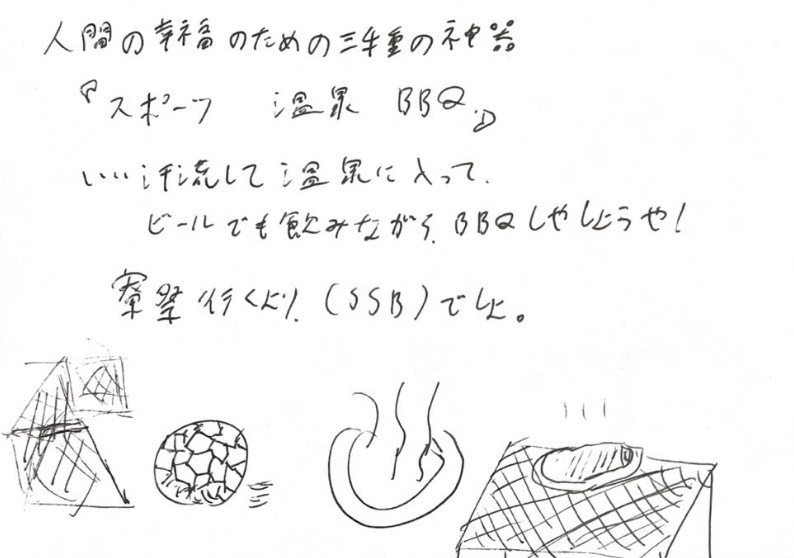 人間の幸福のための三種の神器
『スポーツ 温泉 BBQ』
いい汗流して温泉に入って、
ビールでも飲みながら、BBQしやしょうや!
寮祭行くより、(SSB)でした。